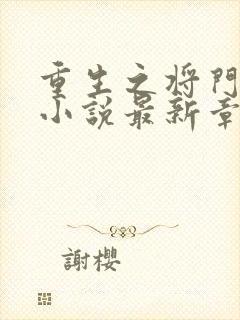 重生之将門
小說最新章
謝櫻